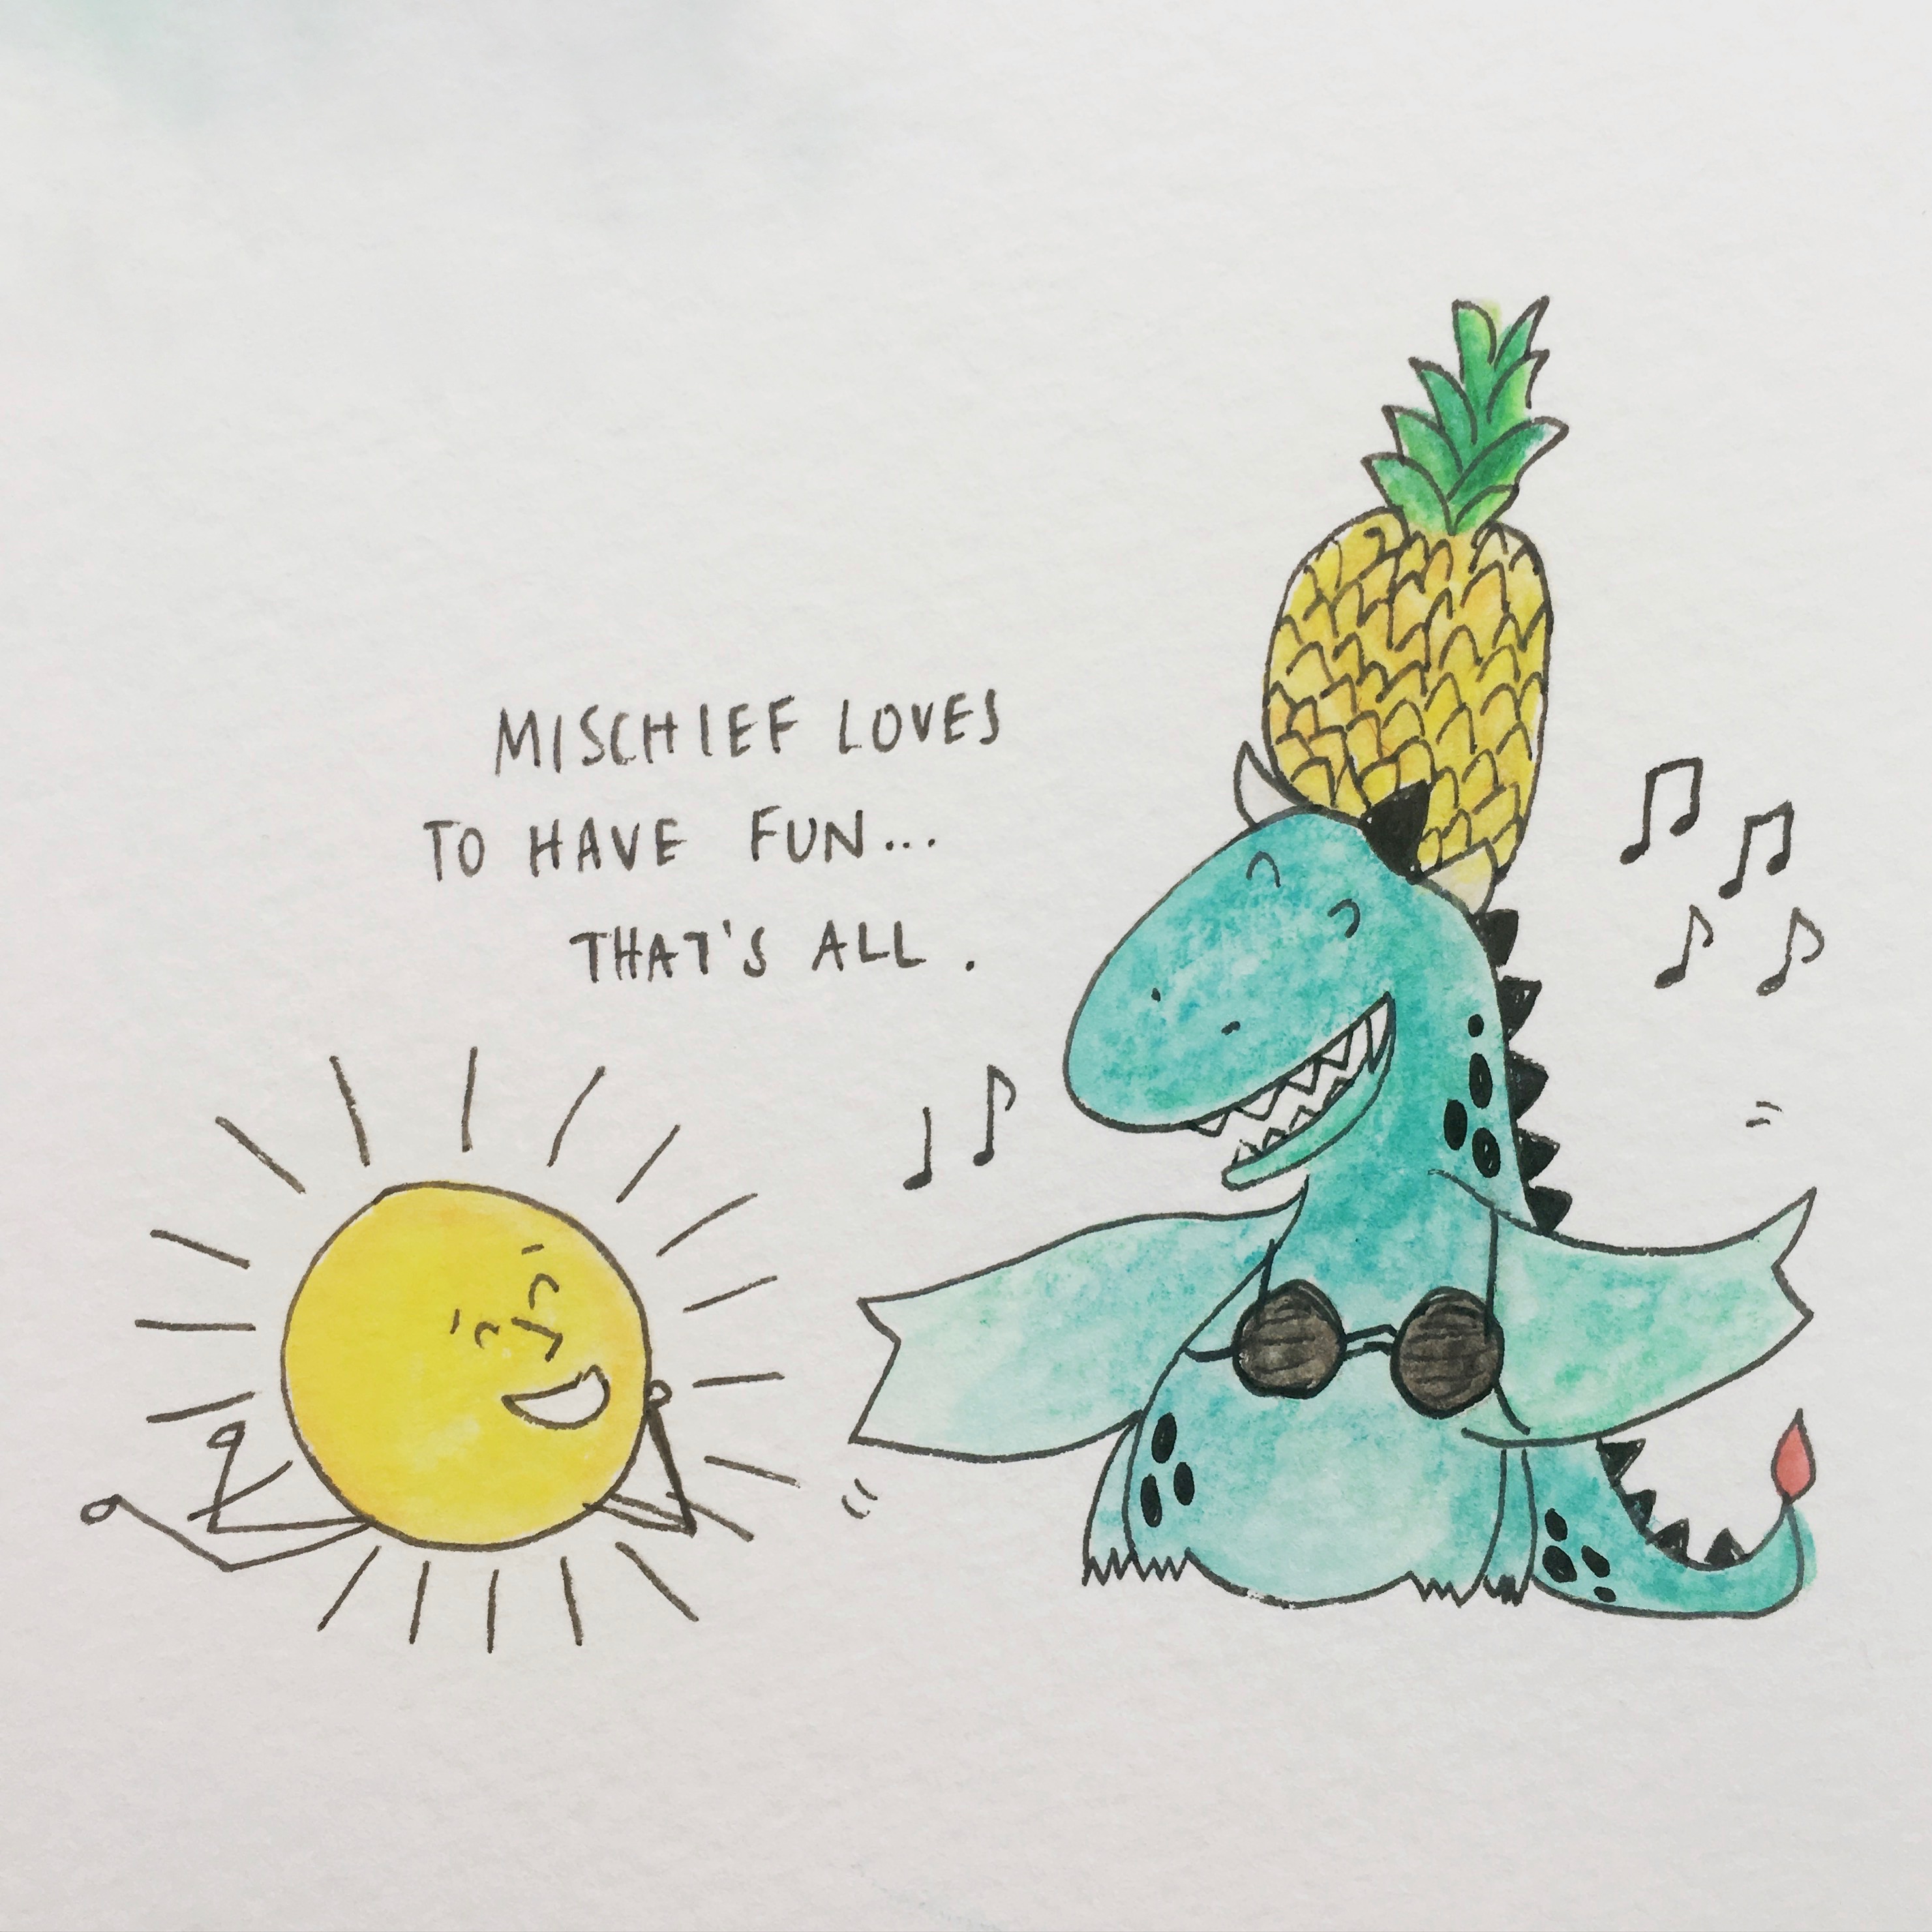 MISCHIEF LOVES
TO HAVE FUN...
THAT'S ALL.